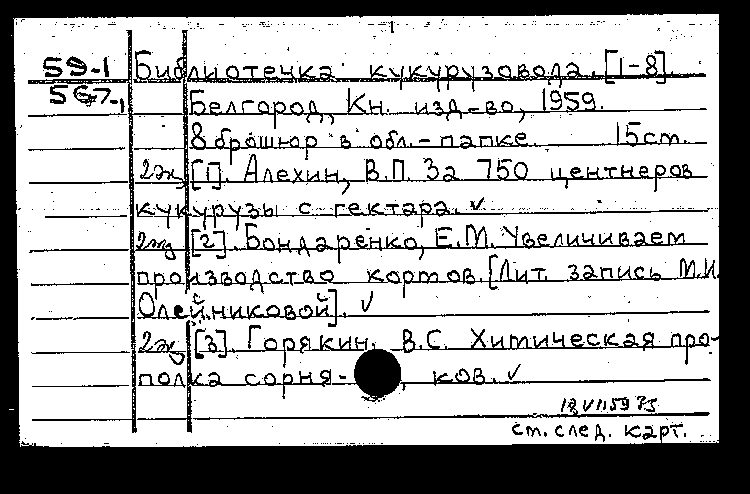 59-1 Библиотечка кукурузовода. [1-8]
567-1 Белгород, Кн. изд-во, 1959.
8 брошюр в обл.-папке. 15см.
2эк [1]. Алехин, В.П. За 750 центнеров
кукурузы с гектара. ✓
2экз [2]. Бондаренко, Е.М. Увеличиваем
производство кормов. [Лит. запись М.И.
Олейниковой]. ✓
2экз [3]. Горякин, В.С. Химическая про-
полка сорня- , ков. ✓
см. след. карт.